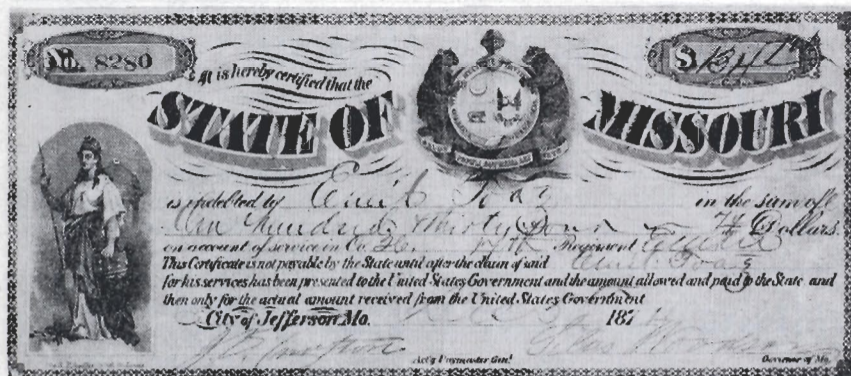 No. 8280
$ 134
It is hereby certified that the
STATE OF MISSOURI
is indebted to in the sum of
One Hundred Thirty Four Dollars
on account of service in Co. Regiment
This Certificate is not payable by the State until after the claim of said
for his services has been presented to the United States Government and the amount allowed and paid to the State and
then only for the actual amount received from the United States Government
City of Jefferson, Mo. 187
Silas Woodson
Act'g Paymaster Genl. Governor of Mo.